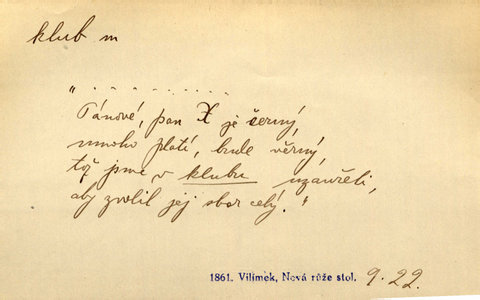 klub m
" . . . . . . . . . .
Pánové, pan X je černý,
mnoho platí, bude věrný,
tož jsme v klubu uzavřeli,
aby zvolil jej sbor celý. "
1861. Vilímek, Nová růže stol. 9. 22.